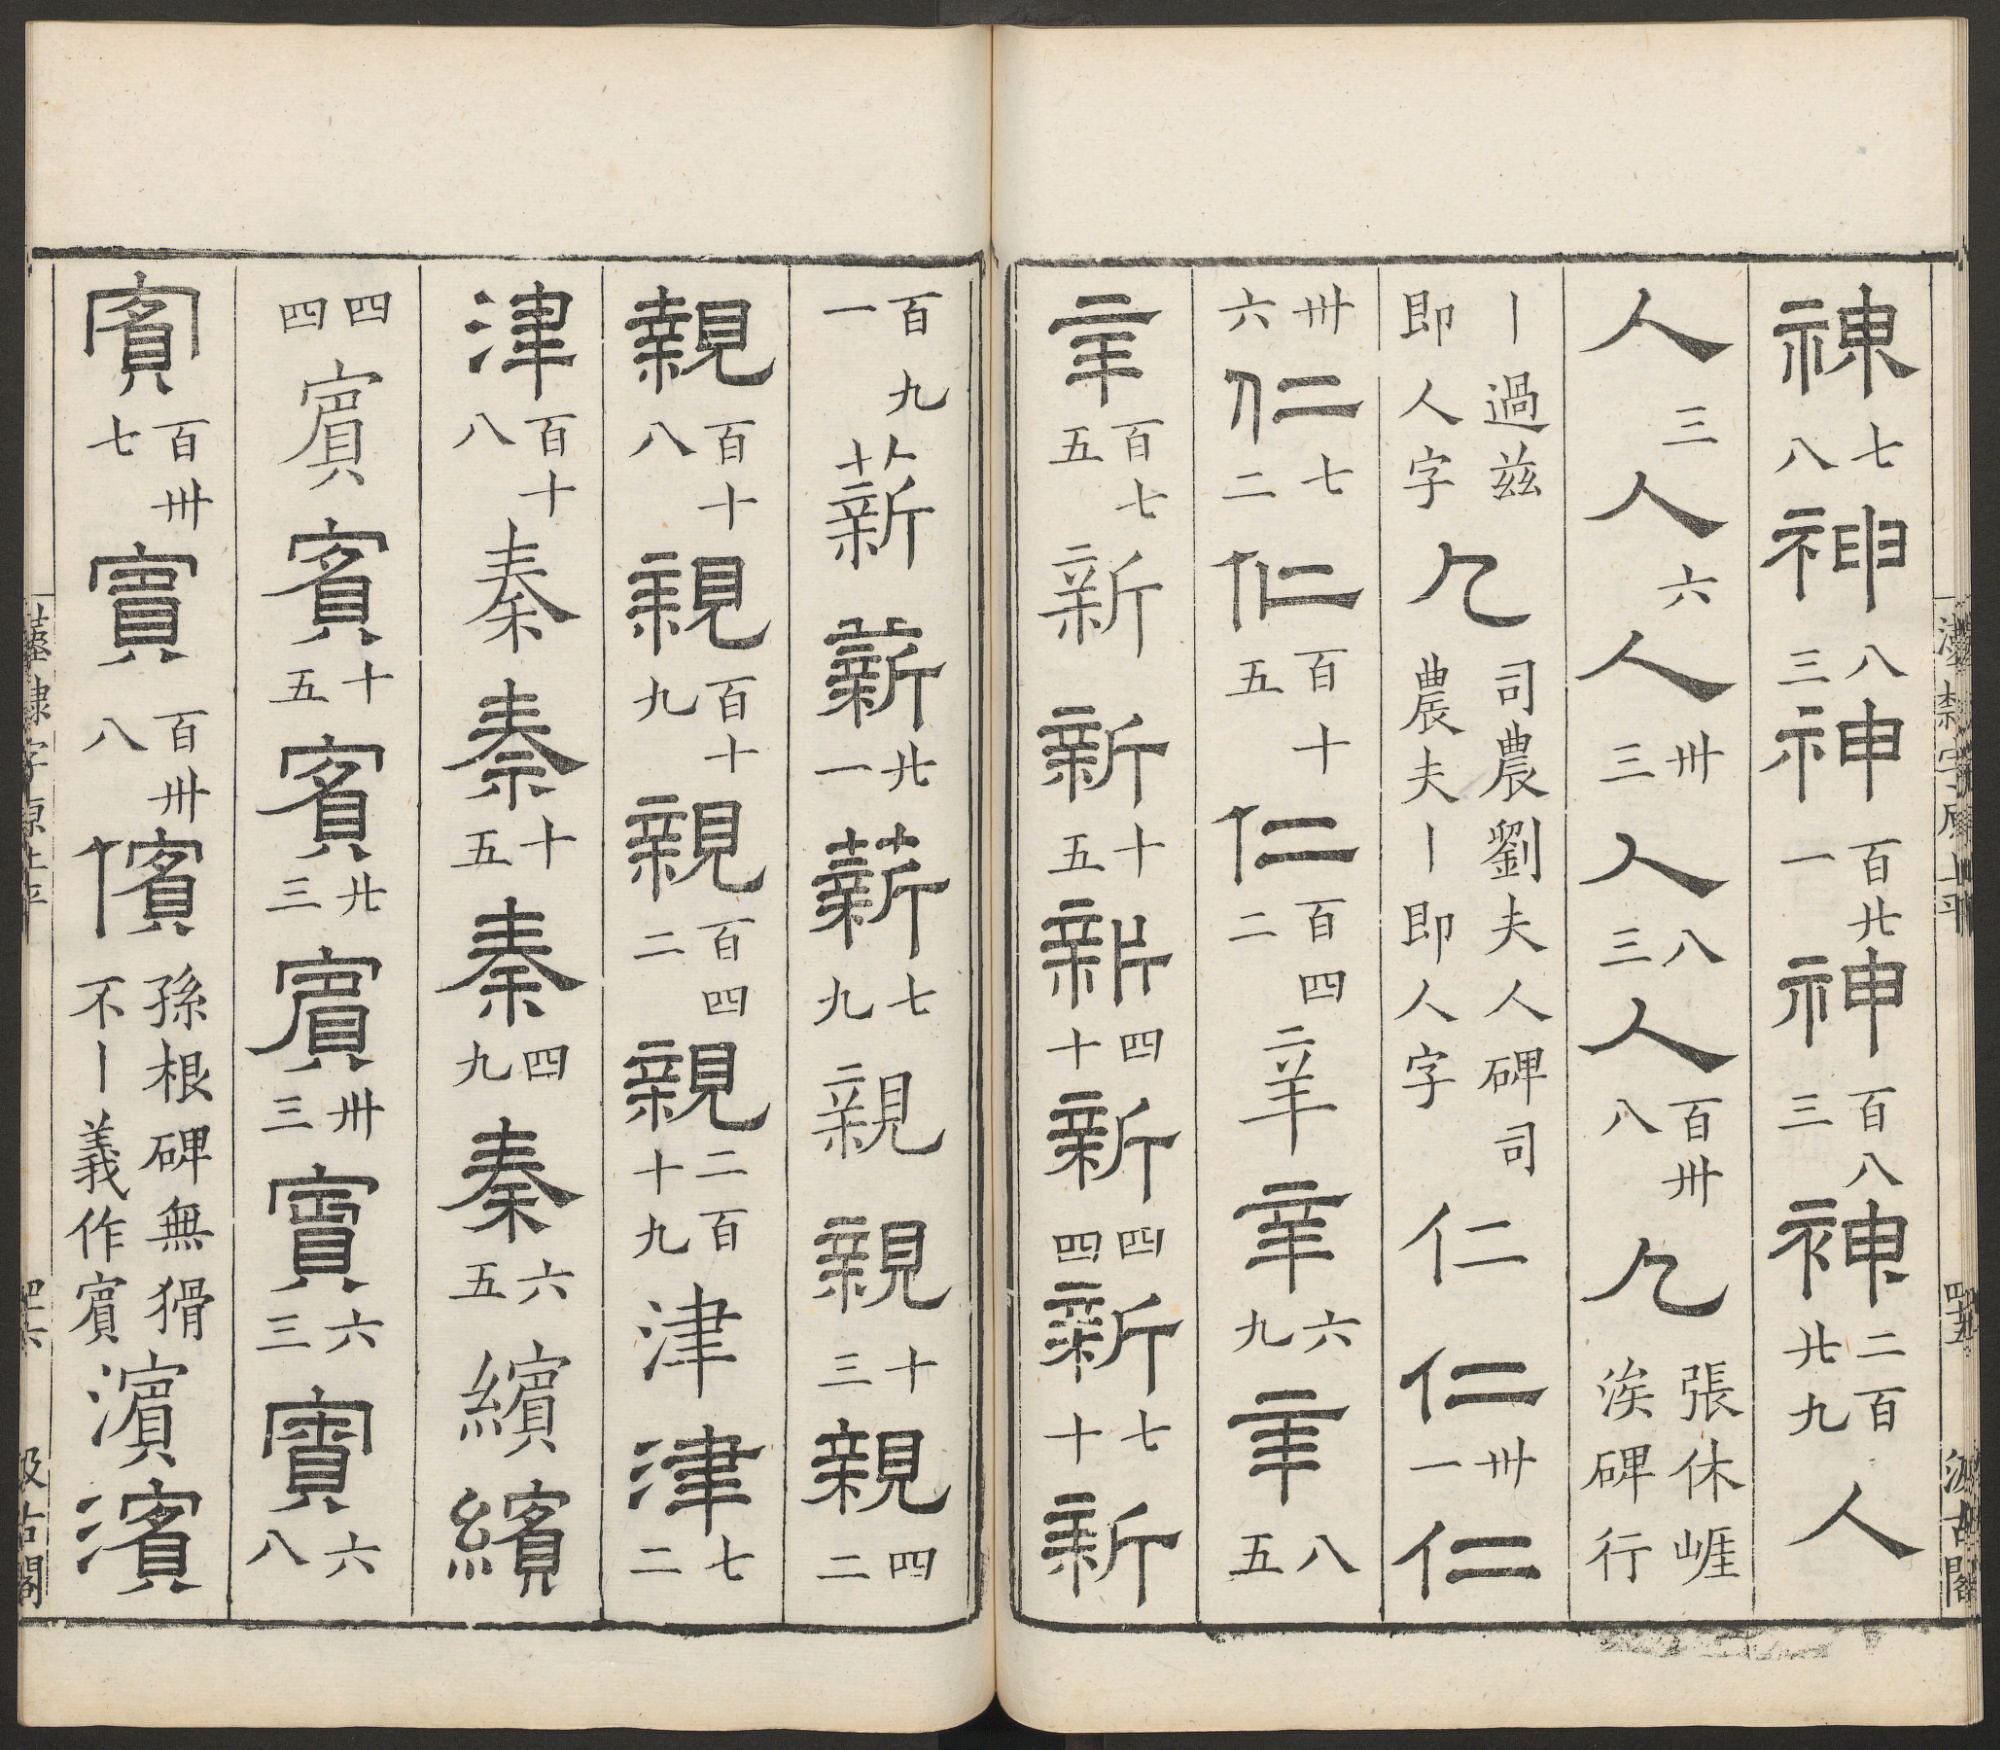 神七八神八三神百廿一神百八三神二百廿九人
人三人六人卅三人八三人百卅八人張休崕涘碑行
丨過兹即人字人司農劉夫人碑司農夫丨即人字仁仁卅一仁
卅六仁七二仁百十五仁百四二辛辛六九辛八五
辛百七五新新十五新四十新四四新七十新
百九一薪薪廿一薪七九親親十三親四二
親百十八親百十九親百四二親二百十九津津七二
津百十八秦秦十五秦四九秦六五繽繽
四四賓賓十五賓廿三賓卅三賓六三賓六八
賓百卅七賓百卅八儐孫根碑無猾不丨義作賓濱濱
漢隸字原上平
四十五
汲古閣
漢隸字原上平
四十六
汲古閣